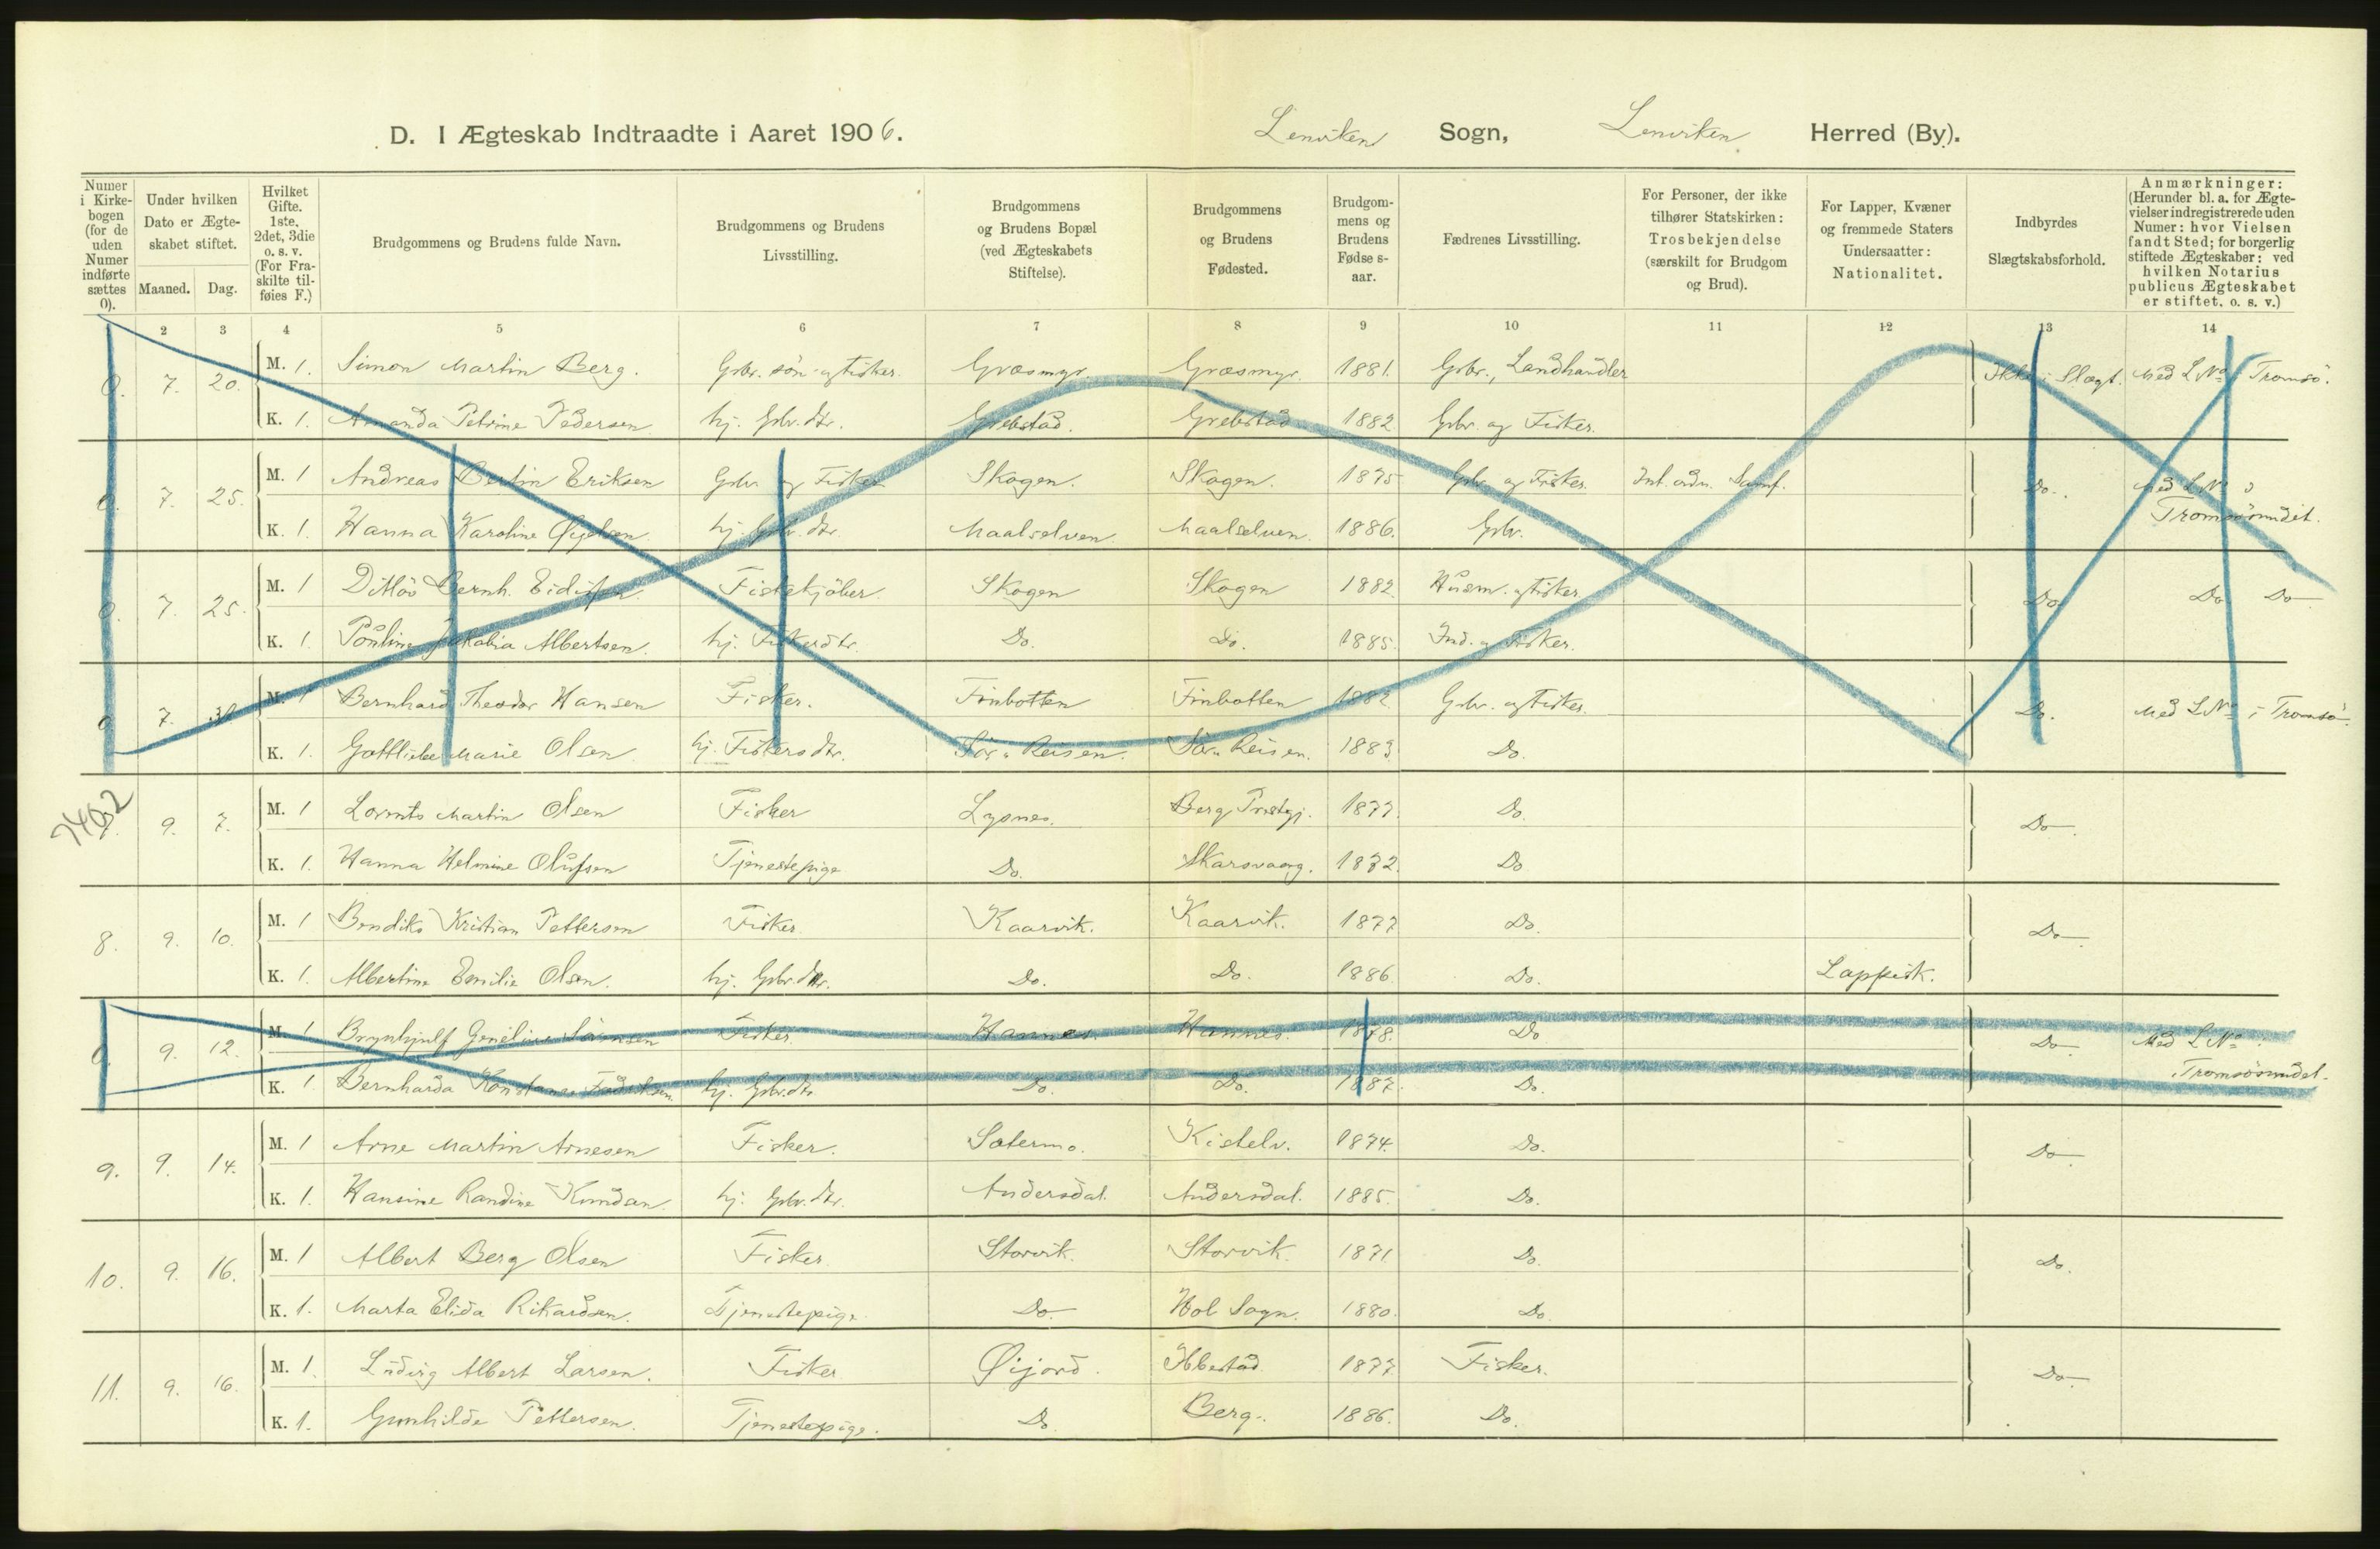 D. I Ægteskab Indtraadte i Aaret 1906. Lenviken Sogn, Lenviken Herred (By).
Numer i Kirkebogen (for de uden Numer indførte sættes 0).
Under hvilken Dato er Ægteskabet stiftet.
Maaned. Dag.
Hvilket Gifte. 1ste, 2det, 3die o. s. v. (For Fraskilte tilføies F.)
Brudgommens og Brudens fulde Navn.
Brudgommens og Brudens Livsstilling.
Brudgommens og Brudens Bopæl (ved Ægteskabets Stiftelse).
Brudgommens og Brudens Fødested.
Brudgommens og Brudens Fødselsaar.
Fædrenes Livsstilling.
For Personer, der ikke tilhører Statskirken: Trosbekjendelse (særskilt for Brudgom og Brud).
For Lapper, Kvæner og fremmede Staters Undersaatter: Nationalitet.
Indbyrdes Slægtskabsforhold.
Anmærkninger: (Herunder bl. a. for Ægtevielser indregistrerede uden Numer: hvor Vielsen fandt Sted; for borgerlig stiftede Ægteskaber: ved hvilken Notarius publicus Ægteskabet er stiftet. o. s. v.)
2 3 4 5 6 7 8 9 10 11 12 13 14
0. 7. 20. M. 1. Simon Martin Berg. Gbr. søn og Fisker. Græsmyr. Græsmyr. 1881. Gbr., Landhandler Ikke i Slægt. Med L No i Tromsö.
K. 1. Amanda Petrine Pedersen hj. Gbr. dtr. Grebstad. Grebstad 1882 Gbr. og Fisker.
0. 7. 25. M. 1 Andreas Bertin Eriksen Gbr. og Fisker Skogen. Skogen. 1875 Gbr. og Fisker. Luth. Samf. Do. Med L No i
Tromsösundet.
K. 1. Hanna Karoline hj. Gbr. dtr. Maalselven. Maalselven. 1886. Gbr.
0. 7. 25. M. 1 Ditløv Bernh. Fiskekjöber. Skogen Skogen 1882. Husm. og Fisker Do Do Do
K. 1. Pauline Jakobia Albertsen. hj. Fiskerdtr. Do. Do. 1885. Ind. og Fisker.
0 7. M. 1 Bernhard Theodor Hansen Fisker. Finbotten Finbotten 1882. Gbr. og Fisker. Do. Med L No i Tromsö.
K. 1. Gottliebe Marie Olsen hj. Fiskersdtr. Sör-Reisen. Sör-Reisen. 1883. Do.
7. 9. 7. M. 1 Lornts Martin Olsen Fisker Lysnes. Berg Prstgj. 1877. Do. Do.
K. 1. Hanna Helmine Olufsen Tjenestepige Do. Skarsvaag. 1872. Do
8. 9. 10. M. 1 Bendiks Kristian Pettersen Fisker. Kaarvik. Kaarvik. 1877 Do. Do.
K. 1. Albertine Emilie Olsen. hj. Gbr. dtr. Do. Do. 1886 Do. Lappisk.
0. 9. 12. M. 1 Brynhjulf Sörensen Fisker. Hannes. Hannes. 1878. Do Do Med L No i
Tromsösundet.
K. 1 Bernharda Konstanse hj. Gbr. dtr Do. Do. 1887. Do.
9. 9. 14. M. 1 Arne Martin Arnesen Fisker. Sætermo. Kistelv. 1874. Do. Do.
K. 1. Hansine Randine Knudsen. hj. Gbr. dtr. Andersdal. Andersdal. 1885. Do.
10. 9. 16. M. 1 Albert Berg Olsen Fisker Storvik. Storvik. 1871 Do. Do.
K. 1. Marta Elida Rikardsen. Tjenestepige. Do Hol Sogn. 1880. Do.
11. 9. 16. M. 1. Ludvig Albert Larsen. Fisker Øijord. Ibbestad. 1877 Fisker. Do.
K. 1. Gunhilde Pettersen. Tjenestepige. Do. Berg. 1886. Do.